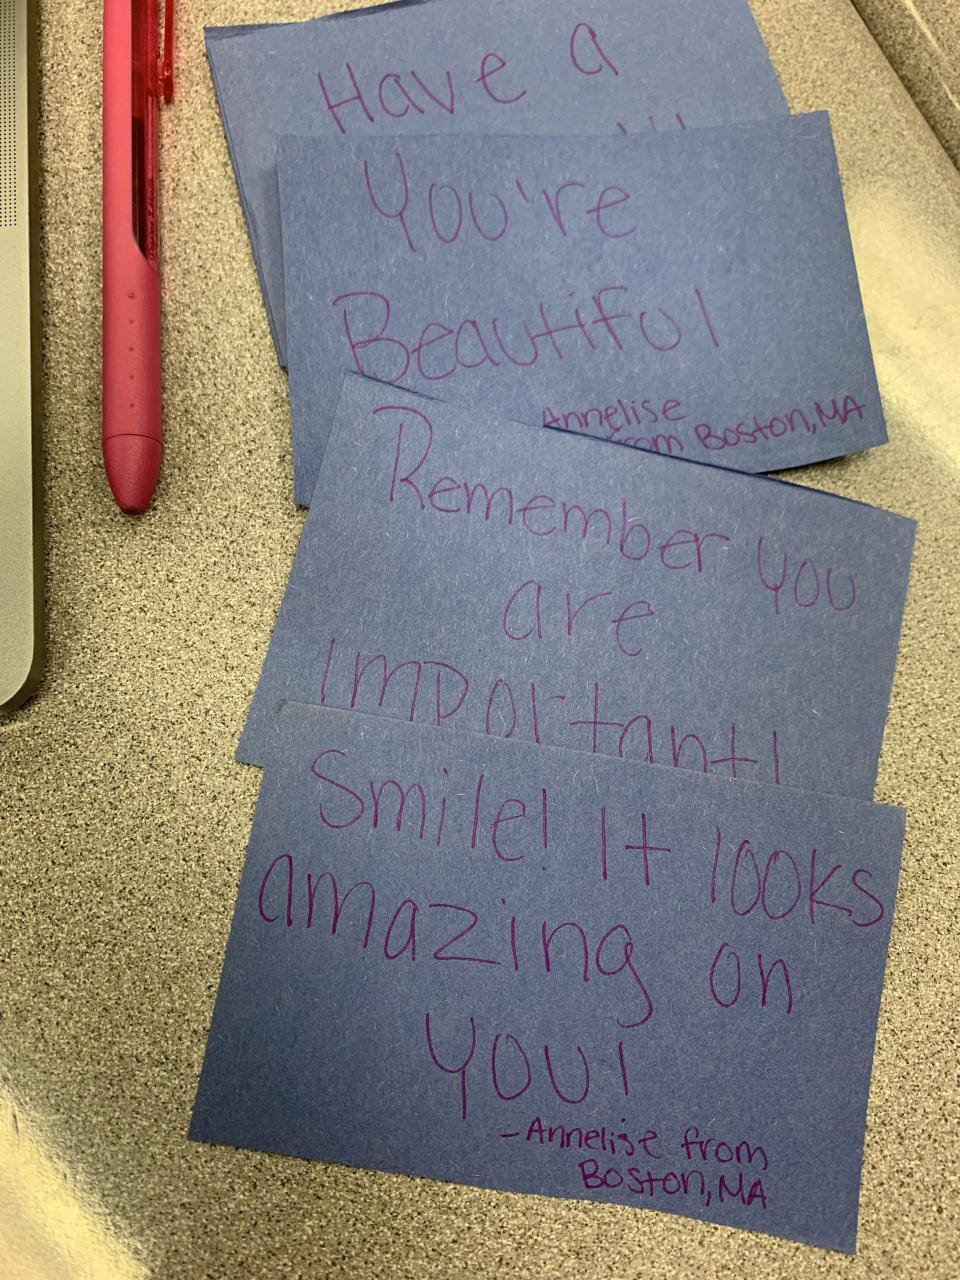 Have a
You're
Beautiful
Annelise
from Boston, MA
Remember you
are
important!
Smile! It looks
amazing on
you!
- Annelise from
Boston, MA